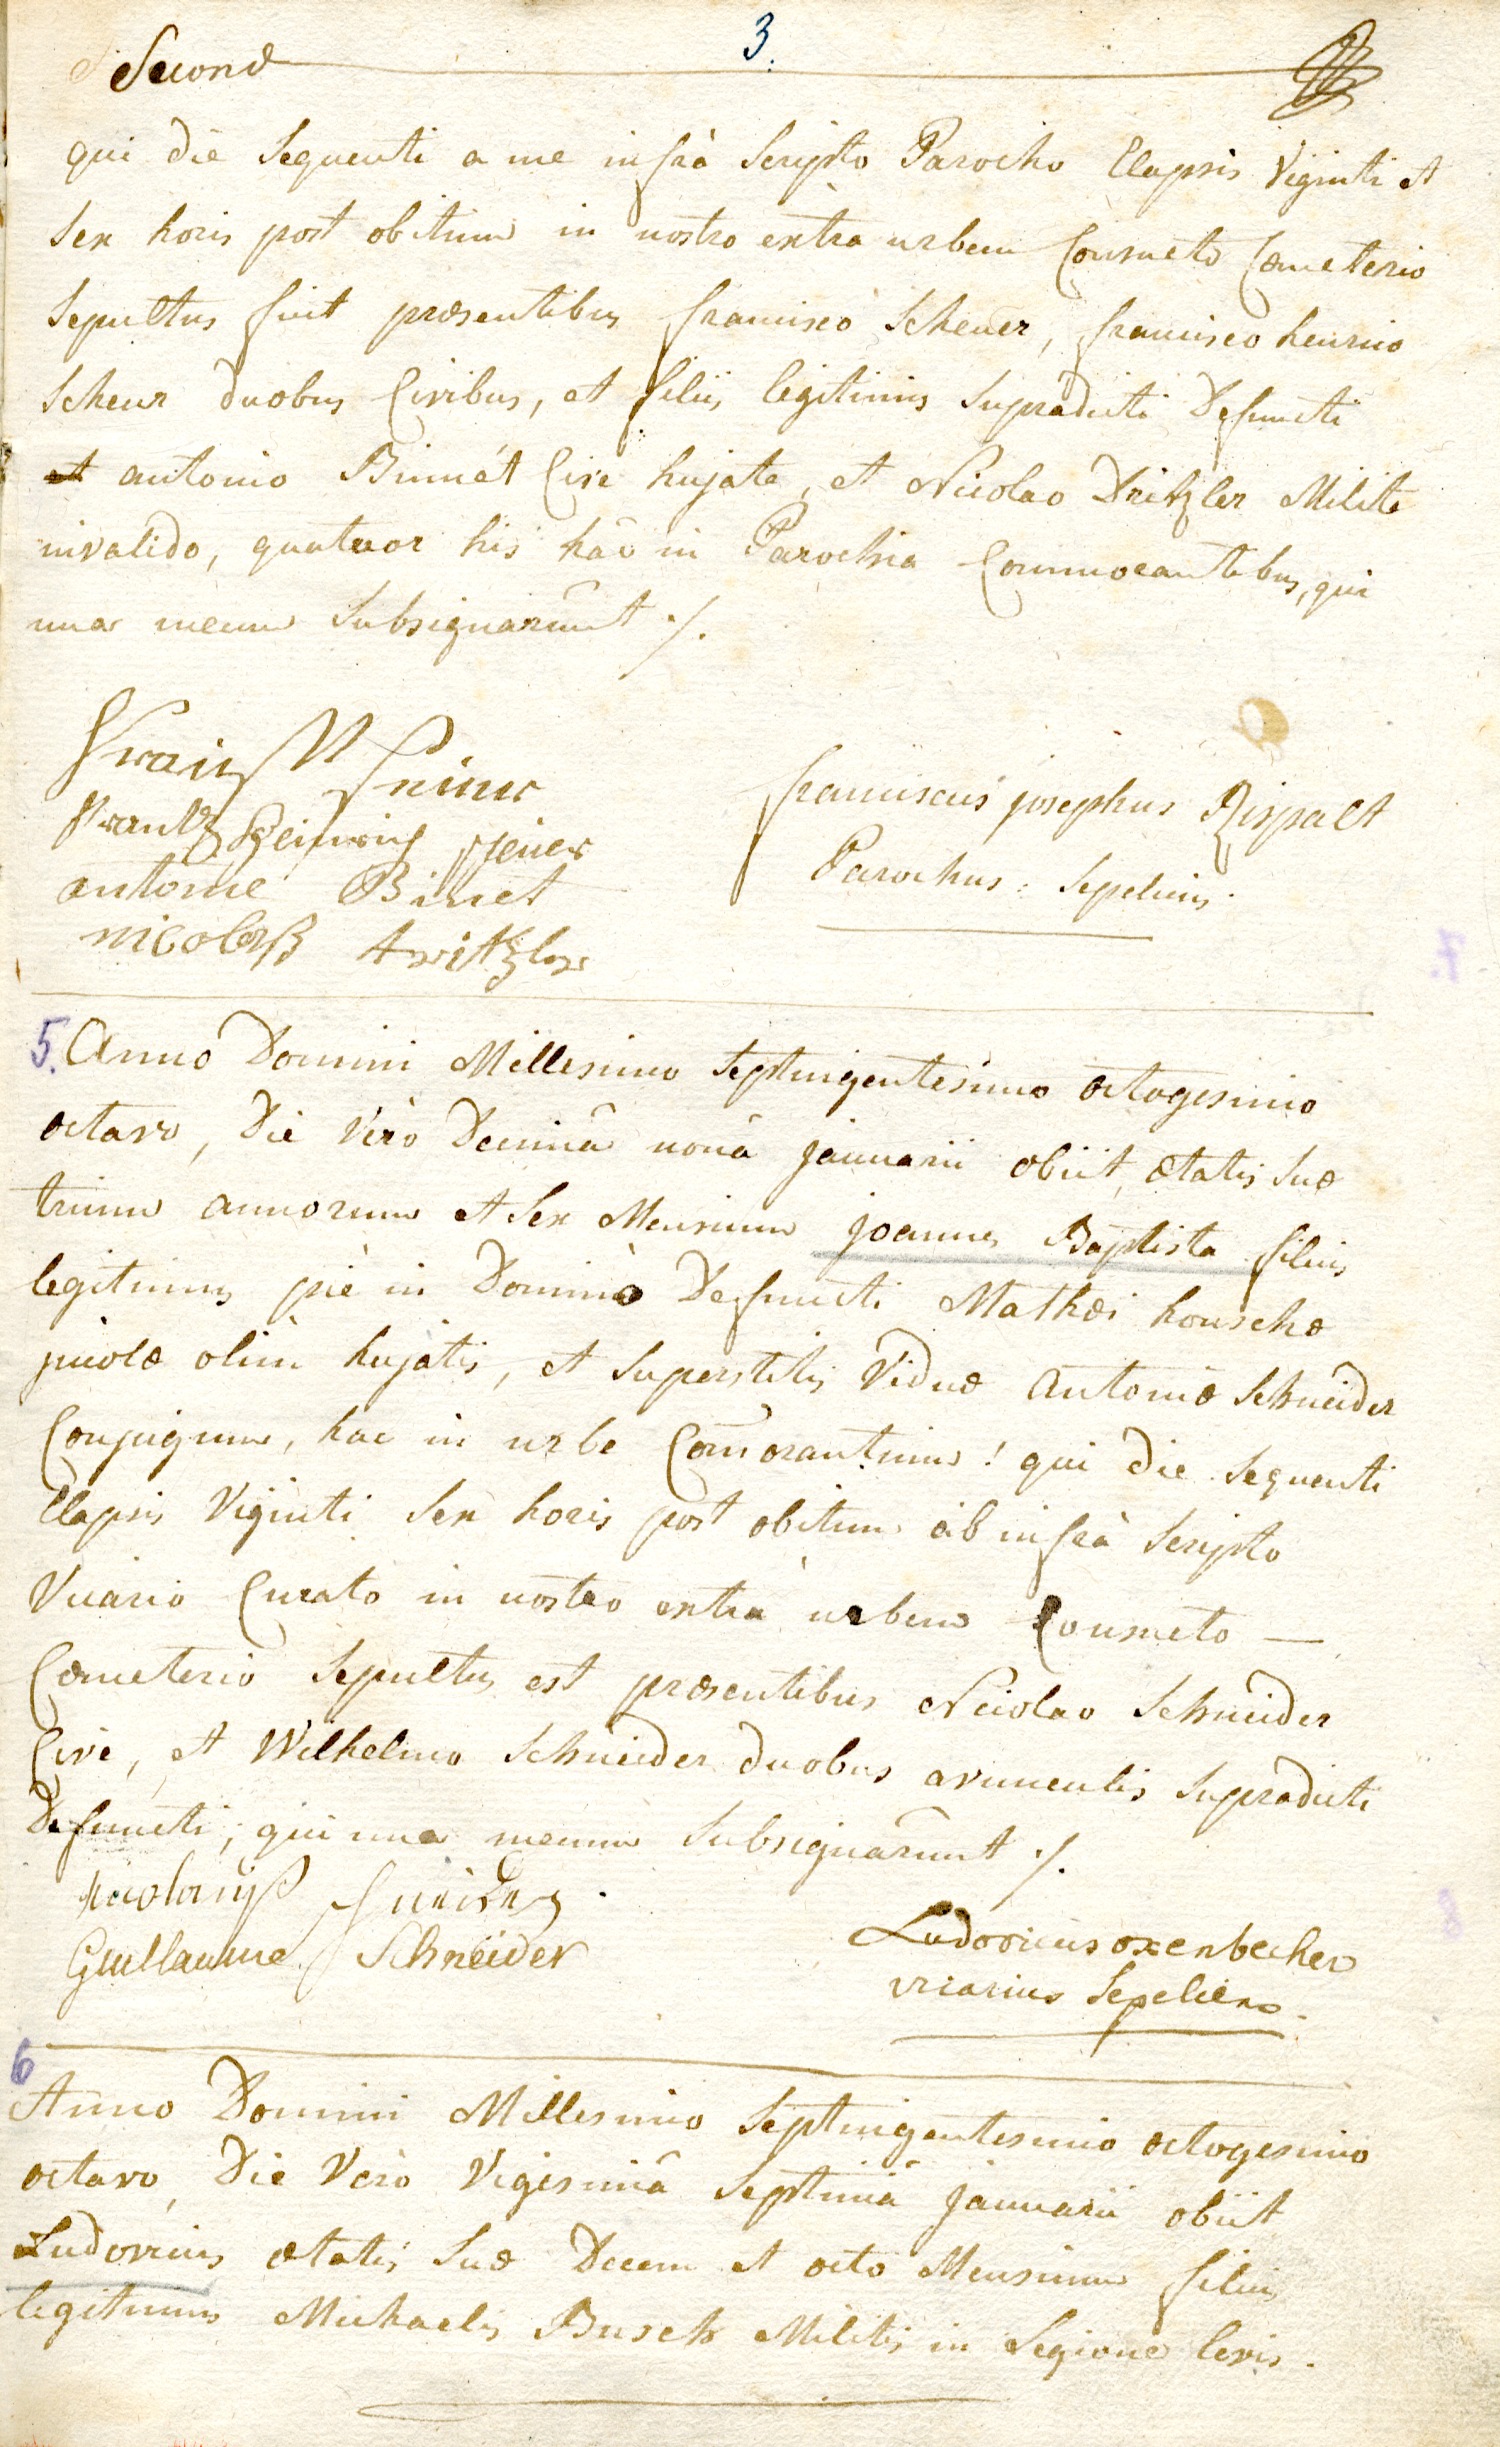 3.
Second
qui die sequenti a me infrà scripto Parocho Elapsis Viginti et
sex horis post obitum in nostro extra urbem Consueto Cœmeterio
sepultus fuit præsentibus francisco scheuer, francisco henrico
scheur duobus Civibus, et filiis legitimis supradicti Defuncti
et antonio Binnét Cive hujate, et Nicolao Dritzler Milite
invalido, quatuor his hâc in Parochia Commorantibus, qui
una mecum subsignarûnt ./.
Frantz
Frantz Heinrich scheuer
antonie Binet
nicolaß tritzler
franciscus josephus Rispalt
Parochus sepeliens.
5. Anno Domini Millesimo septingentesimo octogesimo
octavo, Die Verò Decimâ nonâ januarii obiit, ætatis suæ
trium annorum et sex Mensium joannes Baptista filius
legitimus piè in Domino Defuncti Mathæi housche
incolæ olim hujatis, et superstitis Viduæ Antoniæ Schneider
Conjugum, hac in urbe Com̄orantium! qui die sequenti
Elapsis Viginti sex horis post obitum ab infrà scripto
Vicario Curato in nostro extra urbem Consueto —
Cœmeterio sepultus est præsentibus Nicolao Schneider
Cive, et Wilhelmo Schneider duobus avunculis supradicti
Defuncti; qui una mecum subsignarûnt ./.
nicolauß schneider.
Guillaume Schneider
Ludovicus oxenbecher
vicarius sepeliens.
6
Anno Domini Millesimo septingentesimo octogesimo
octavo, Die Verò Vigesimâ septimâ januarii obiit
Ludovicus ætatis suæ Decem et octo Mensium filius
legitimus Michaelis Busch Militis in Legione levis.